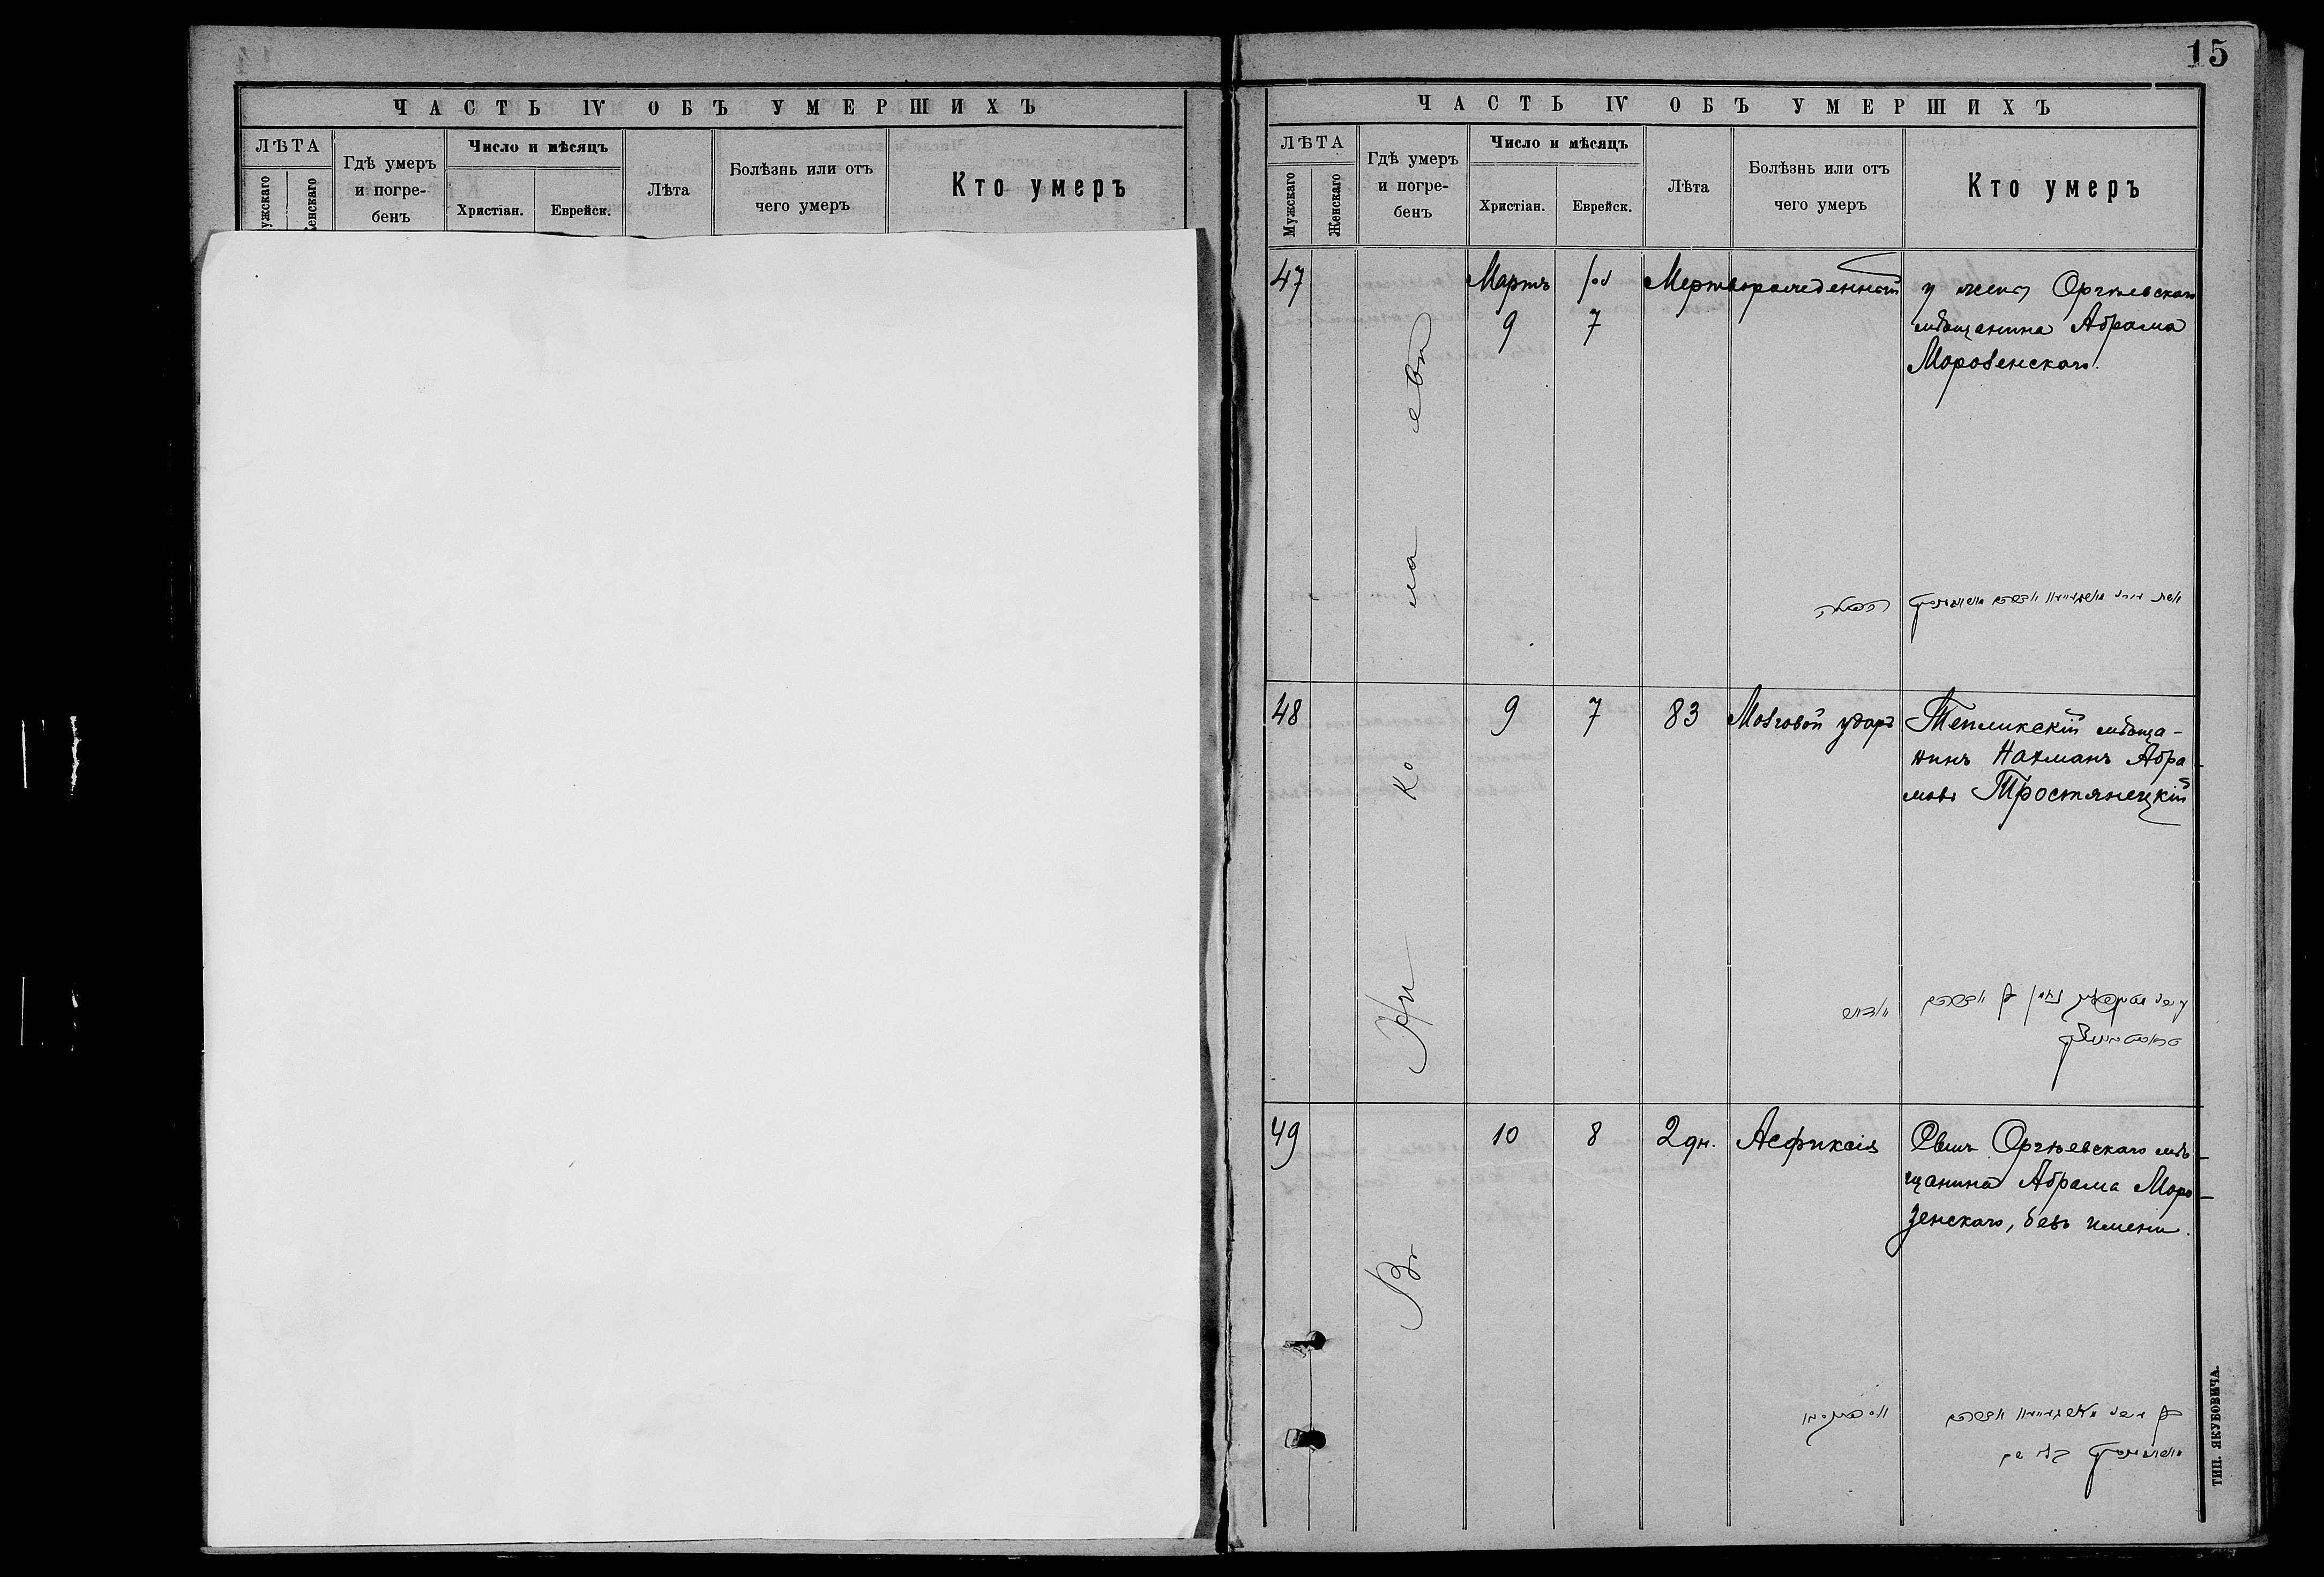 15
ЧАСТЬ IV ОБЪ УМЕРШИХЪ
ЛѢТА
Гдѣ умеръ
и погре-
бенъ
Число и мѣсяцъ
Христіан.
Еврейск.
Лѣта
Болѣзнь или отъ
чего умеръ
Кто умеръ
ЧАСТЬ IV ОБЪ УМЕРШИХЪ
ЛѢТА
Мужскаго
Женскаго
Гдѣ умеръ
и погре-
бенъ
Число и мѣсяцъ
Христіан.
Еврейск.
Лѣта
Болѣзнь или отъ
чего умеръ
Кто умеръ
47
Мартъ
9
7
Мертворожденный
у жены Оргѣевскаго
мѣщанина Абрама
Морозенскаго.
48
9
7
83
Мозговой ударъ
Тепликскій мѣща-
нинъ Нахманъ Абра-
мовъ Тростянецкій
49
10
8
2 дн.
Асфиксія
Сынъ Оргѣевскаго мѣ-
щанина Абрама Моро-
зенскаго, безъ имени.
Въ Ни ко ла евѣ
ТИП. ЯКУБОВИЧА.